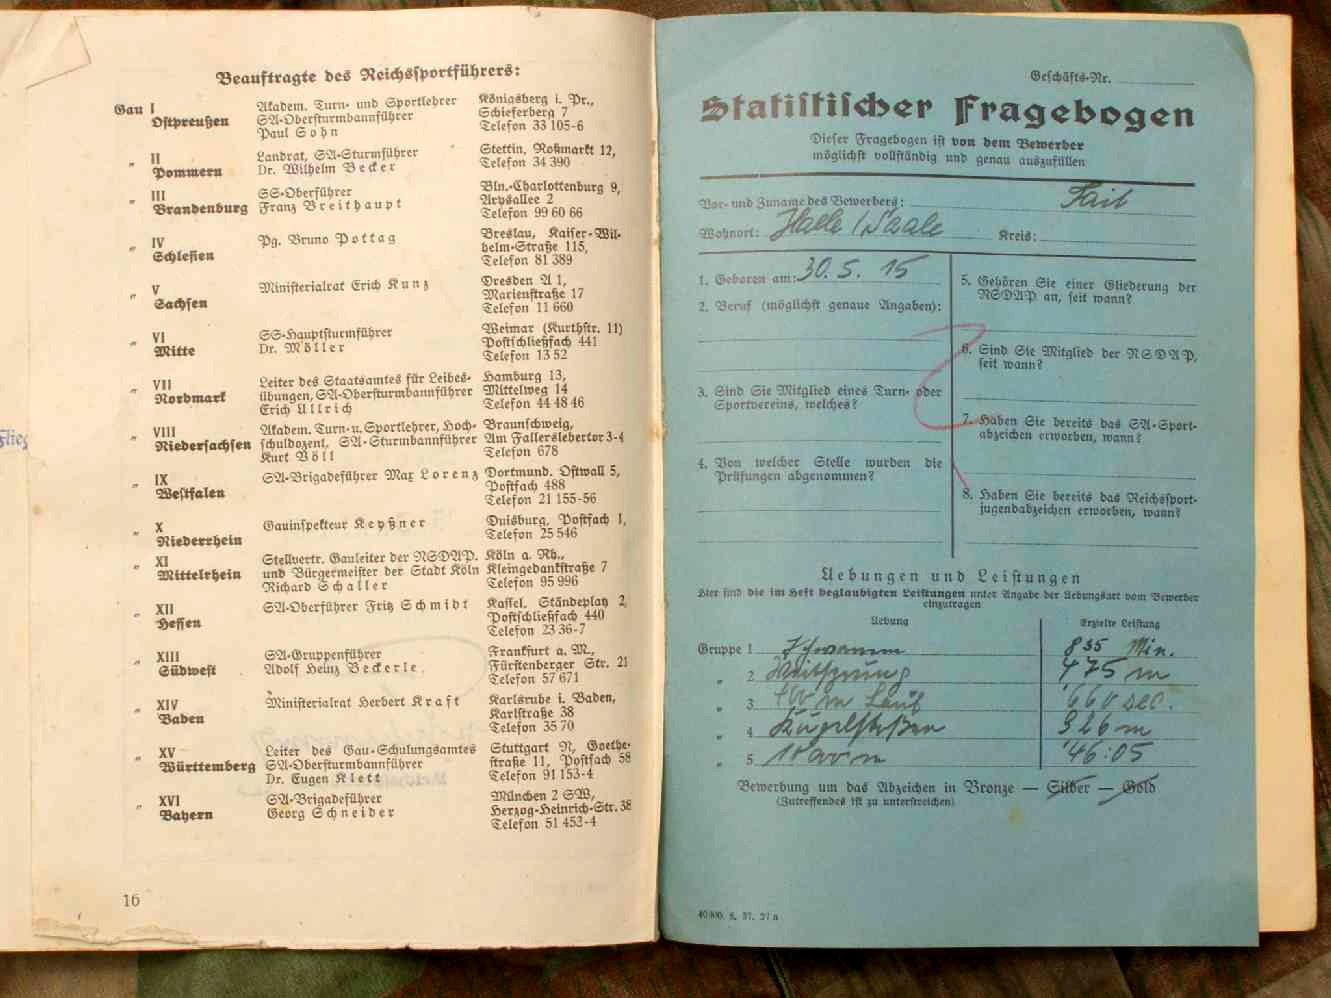 Beauftragte des Reichssportführers:
Gau I Akadem. Turn- und Sportlehrer Königsberg i. Pr.,
Ostpreußen SA-Obersturmbannführer Schieferberg 7
Paul Sohn Telefon 33 105-6
„ II Landrat, SA-Sturmführer Stettin, Roßmarkt 12,
Pommern Dr. Wilhelm Becker Telefon 34 390
„ III SS-Oberführer Bln.-Charlottenburg 9,
Brandenburg Franz Breithaupt Arysallee 2
Telefon 99 60 66
„ IV Pg. Bruno Pottag Breslau, Kaiser-Wil-
Schlesien helm-Straße 115,
Telefon 81 389
„ V Ministerialrat Erich Kunz Dresden A 1,
Sachsen Marienstraße 17
Telefon 11 660
„ VI SS-Hauptsturmführer Weimar (Kurthstr. 11)
Mitte Dr. Möller Postschließfach 441
Telefon 13 52
„ VII Leiter des Staatsamtes für Leibes- Hamburg 13,
Nordmark übungen, SA-Obersturmbannführer Mittelweg 14
Erich Ullrich Telefon 44 48 46
„ VIII Akadem. Turn- u. Sportlehrer, Hoch- Braunschweig,
Niedersachsen schuldozent, SA-Sturmbannführer Am Fallerslebertor 3-4
Kurt Böll Telefon 678
„ IX SA-Brigadeführer Max Lorenz Dortmund. Ostwall 5,
Westfalen Postfach 488
Telefon 21 155-56
„ X Gauinspekteur Keyßner Duisburg, Postfach 1,
Niederrhein Telefon 25 546
„ XI Stellvertr. Gauleiter der NSDAP. Köln a. Rh.,
Mittelrhein und Bürgermeister der Stadt Köln Kleingedankstraße 7
Richard Schaller Telefon 95 996
„ XII SA-Oberführer Fritz Schmidt Kassel. Ständeplatz 2,
Hessen Postschließfach 440
Telefon 23 36-7
„ XIII SA-Gruppenführer Frankfurt a. M.,
Südwest Adolf Heinz Beckerle Fürstenberger Str. 21
Telefon 57 671
„ XIV Ministerialrat Herbert Kraft Karlsruhe i. Baden,
Baden Karlstraße 38
Telefon 35 70
„ XV Leiter des Gau-Schulungsamtes Stuttgart N, Goethe-
Württemberg SA-Obersturmbannführer straße 11, Postfach 58
Dr. Eugen Klett Telefon 91 153-4
„ XVI SA-Brigadeführer München 2 SW,
Bayern Georg Schneider Herzog-Heinrich-Str. 38
Telefon 51 453-4
16
Flieg
Geschäfts-Nr.
Statistischer Fragebogen
Dieser Fragebogen ist von dem Bewerber
möglichst vollständig und genau auszufüllen
Vor- und Zuname des Bewerbers:
Wohnort: Halle / Saale Kreis:
1. Geboren am: 30. 5. 15
2. Beruf (möglichst genaue Angaben):
3. Sind Sie Mitglied eines Turn- oder
Sportvereins, welches?
4. Von welcher Stelle wurden die
Prüfungen abgenommen?
5. Gehören Sie einer Gliederung der
NSDAP an, seit wann?
6. Sind Sie Mitglied der NSDAP,
seit wann?
7. Haben Sie bereits das SA-Sport-
abzeichen erworben, wann?
8. Haben Sie bereits das Reichssport-
jugendabzeichen erworben, wann?
Uebungen und Leistungen
Hier sind die im Heft beglaubigten Leistungen unter Angabe der Uebungsart vom Bewerber
einzutragen
Uebung Erzielte Leistung
Gruppe 1 Schwimmen 8 35 Min.
„ 2 Weitsprung 475 m
„ 3 400 m Lauf 66,0 sec.
„ 4 Kugelstoßen 826 m
„ 5 46:05
Bewerbung um das Abzeichen in Bronze — Silber — Gold
(Zutreffendes ist zu unterstreichen)